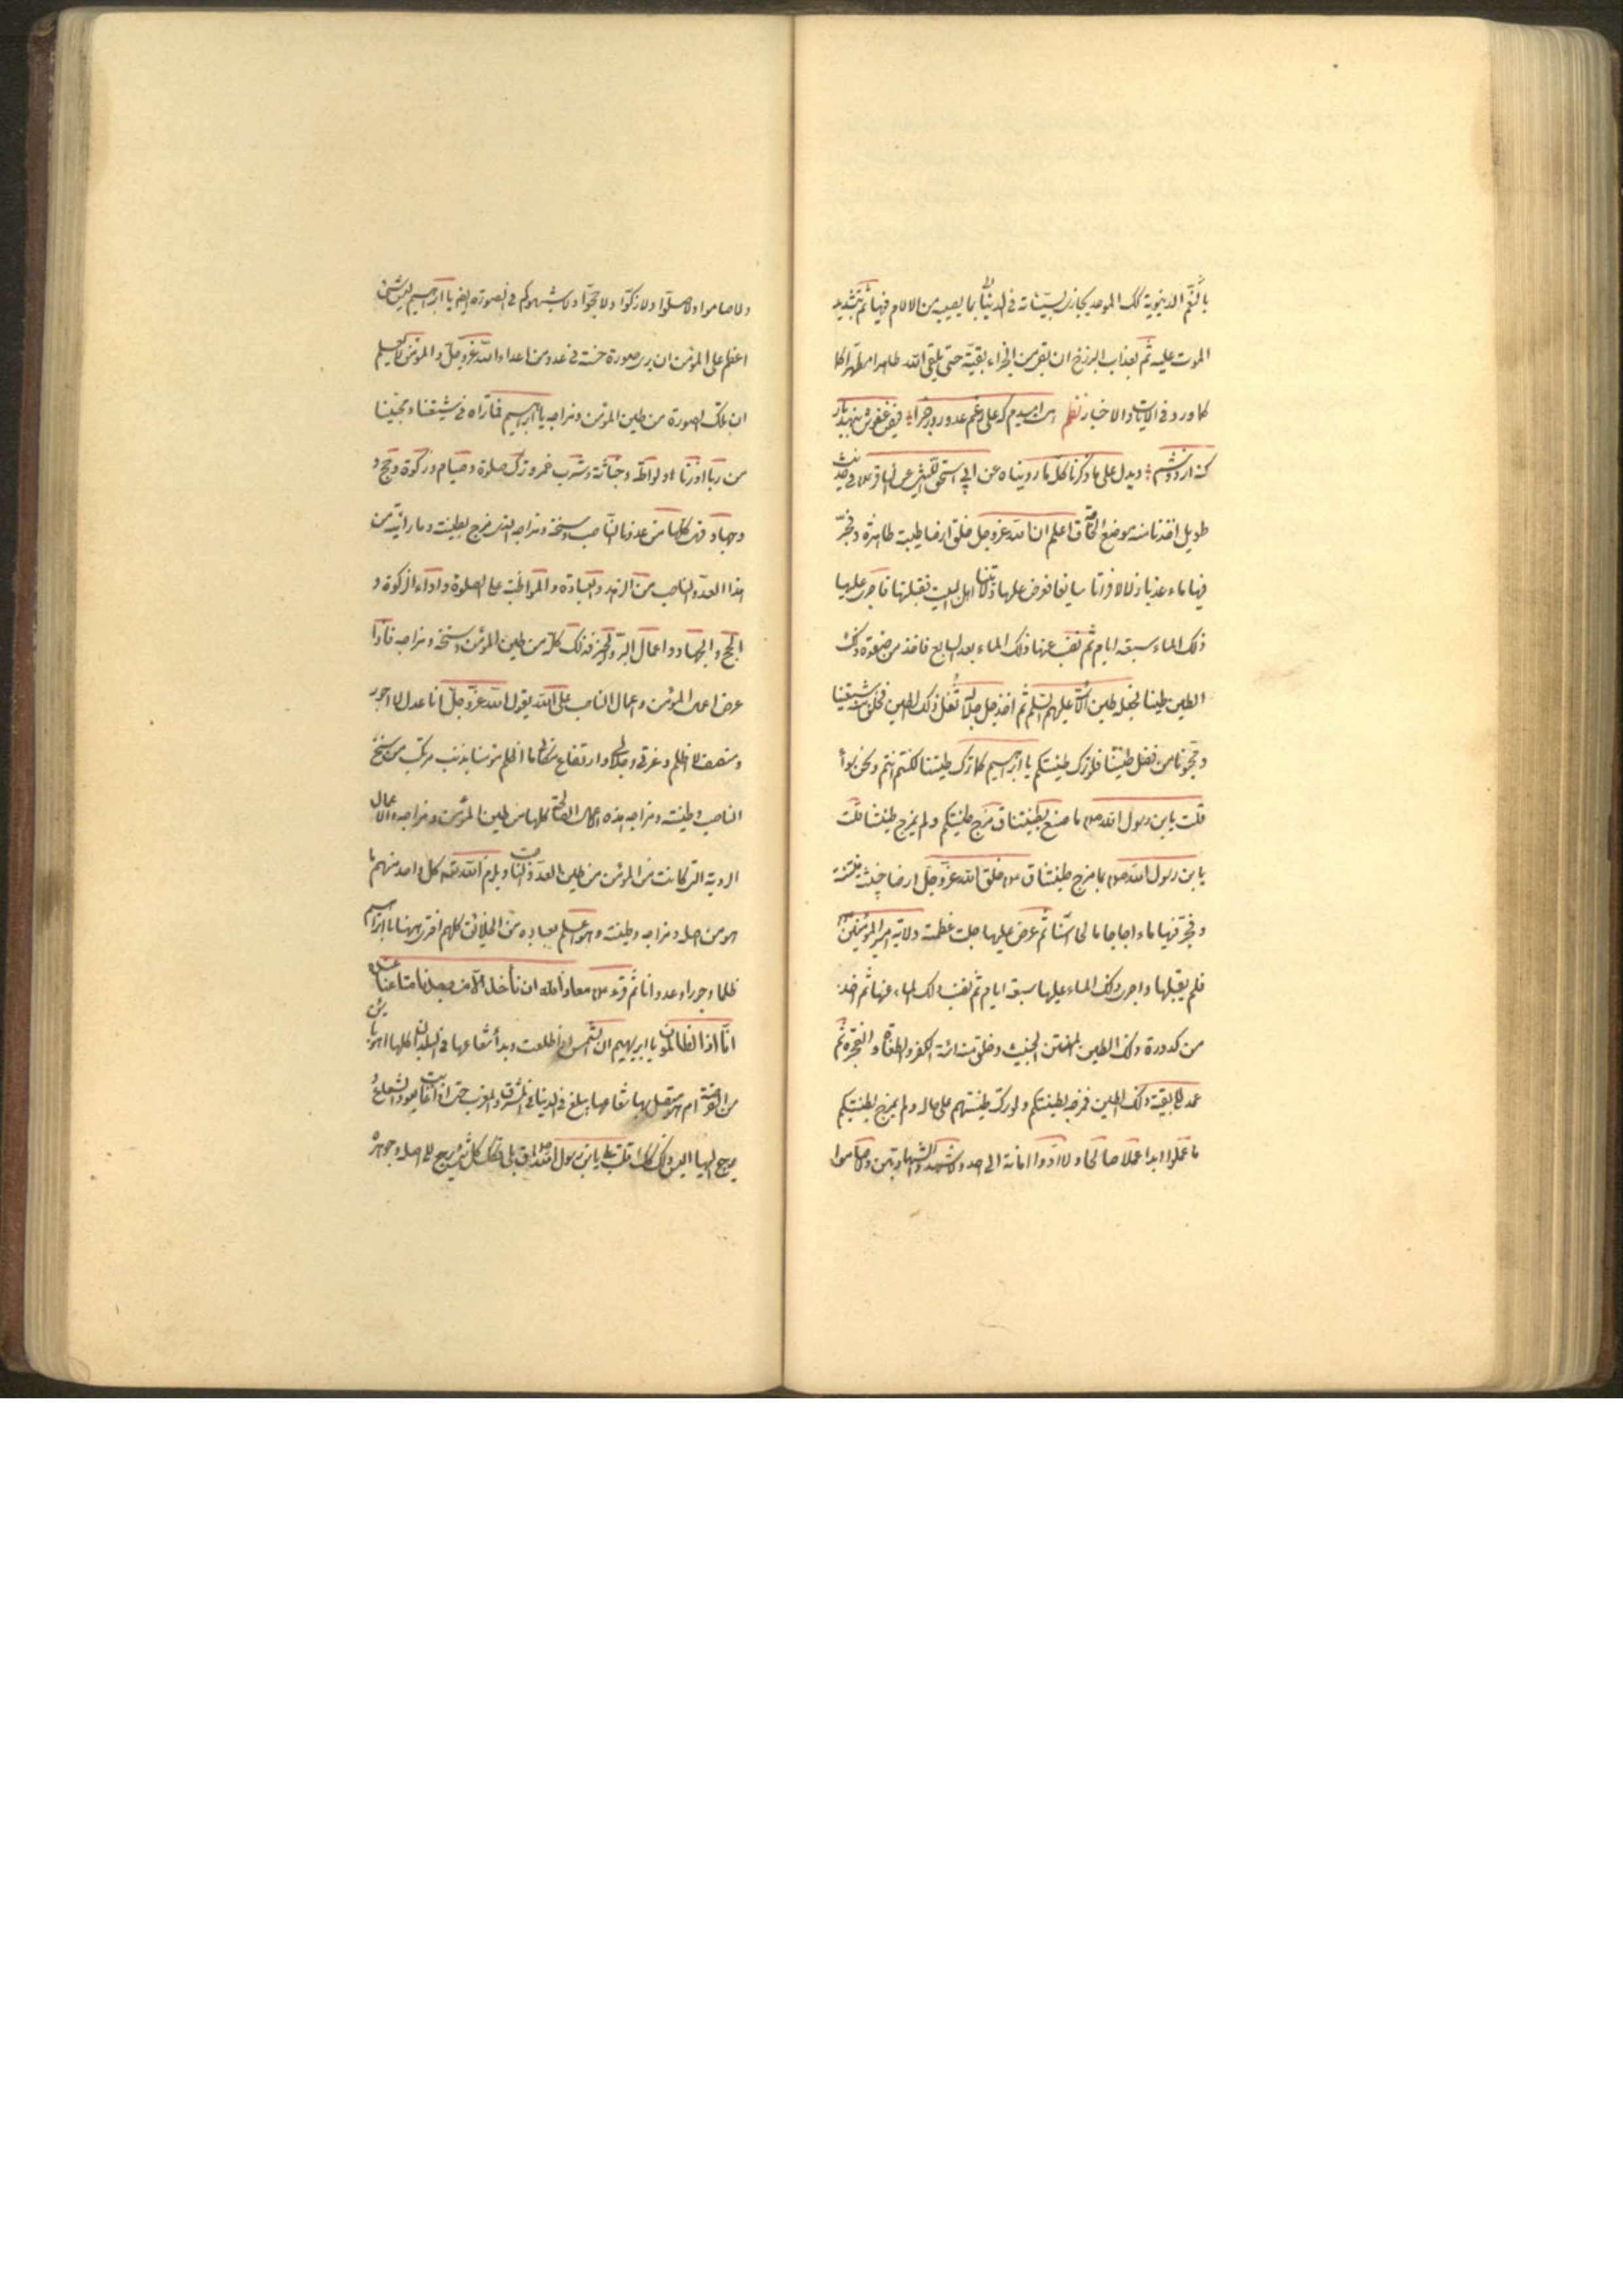 بالنّعم الدنيوية كك الموحد يجازى بسيّئاته فى الدنيا بما يصيبه من الالام فيها ثم بتشديد
الموت عليه ثم بعذاب البرزخ ان بقى من الجزاء بقيّة حتى يلقى الله طاهرا مطهّرا كما
كما ورد فى الايات والاخبار نظم هست اميدم كه على رغم عدو روز جزا فيض عفوش ننهد بار
كنه بر دوشم ويدل على ما ذكرنا كلّه ما رويناه عن ابي اسحق الليثى عن الباقر ع فى حديث
طويل اخذنا منه موضع الحاجة ق اعلم ان الله عزوجل خلق ارضا طيبة طاهرة وفجّر
فيها ماء عذبا زلالا فراتا سايغا فعرض عليها ولايتنا اهل البيت فقبلتها فاجرى عليها
ذلك الماء سبعة ايام ثم نضب عنها ذلك الماء بعد السابع فاخذ من صفوة ذلك
الطين طينا فجعله طين الائمة عليهم السلم ثم اخذ جل جلاله ثفل ذلك الطين فخلق منه شيعتنا
ومحبّونا من فضل طينتنا فلو ترك طينتكم يا ابرهيم كما ترك طينتنا لكنتم انتم ونحن سواء
قلت يابن رسول الله ص ما صنع بطينتنا ق مزج طينتكم ولم يمزج طينتنا قلت
يا بن رسول الله ص بما مزج طينتنا ق ع خلق الله عزّوجلّ ارضا خبيثة منتنة
وفجّر فيها ماء اجاجا مالحا آسنا ثم عرض عليها جلت عظمته ولاية امير المؤمنين ع
فلم يقبلها واجرى ذلك الماء عليها سبعة ايام ثم نضب ذلك الماء عنها ثم اخذ
من كدورة ذلك الطين المنتن الخبيث وخلق منه ائمة الكفر والطغاة والفجرة ثم
عمد الى بقية ذلك الطين فمزجه بطينتكم ولو ترك طينتهم على حاله ولم يمزج بطينتكم
ما عملوا ابدا عملا صالحا ولا ادّوا امانة الى احد ولا شهدوا الشهادتين ولا صاموا
ولا صاموا ولا صلّوا ولا زكّوا ولا حجّوا ولا شبهوكم فى الصورة ايضا يا ابرهيم ليس شئ
اعظم على المؤمن ان يرى صورة حسنة فى عدو من اعداء الله عزوجلّ والمؤمن لا يعلم
ان تلك الصورة من طين المؤمن ومزاجه يا ابرهيم فما تراه فى شيعتنا ومحبينا
من ربا او زنا او لواطة وخيانة وشرب خمر وترك صلوة وصيام وزكوة وحج و
وجهاد فهى كلها من عدونا الناصب وسنخه ومزاجه الذى مزج بطينته وما رايته من
هذا العدو الناصب من الزهد والعبادة والمواظبة على الصلوة واداء الزكوة و
الحج والجهاد واعمال البرّ والخير فذلك كلّه من طين المؤمن وسنخه ومزاجه فاذا
عرض اعمال المؤمن واعمال الناصب على الله يقول الله عزّوجلّ انا عدل لا اجور
ومنصف لا اظلم وعزتى وجلالى وارتفاع مكانى ما اظلم مؤمنا بذنب مرتكب من سنخ
الناصب وطينته ومزاجه هذه الاعمال الصالحة كلها من طين المؤمن ومزاجه والاعمال
الردية التى كانت من المؤمن من طين العدو الناصب ويلزم الله تعه كل واحد منهم ما
هو من اصله ومزاجه وطينته وهو اعلم بعباده من الخلائق كلهم افترى ههنا يا ابرهيم
ظلما وجورا وعدوانا ثم قرء ع معاذ الله ان نأخذ الا من وجدنا متاعنا عنده
انّا اذا لظالمون يا ابرهيم ان الشمس اذا طلعت وبدأ شعاعها فى البلدان كلها اهو باين
من القرصة ام هو متصل بها شعاعها يبلغ فى الدنيا فى المشرق والمغرب حتى اذا غابت يعود الشعاع و
يرجع اليها اليس ذلك كذلك قلت بلى يابن رسول الله ص ق ع فكذلك كل شئ يرجع الى اصله وجوهره